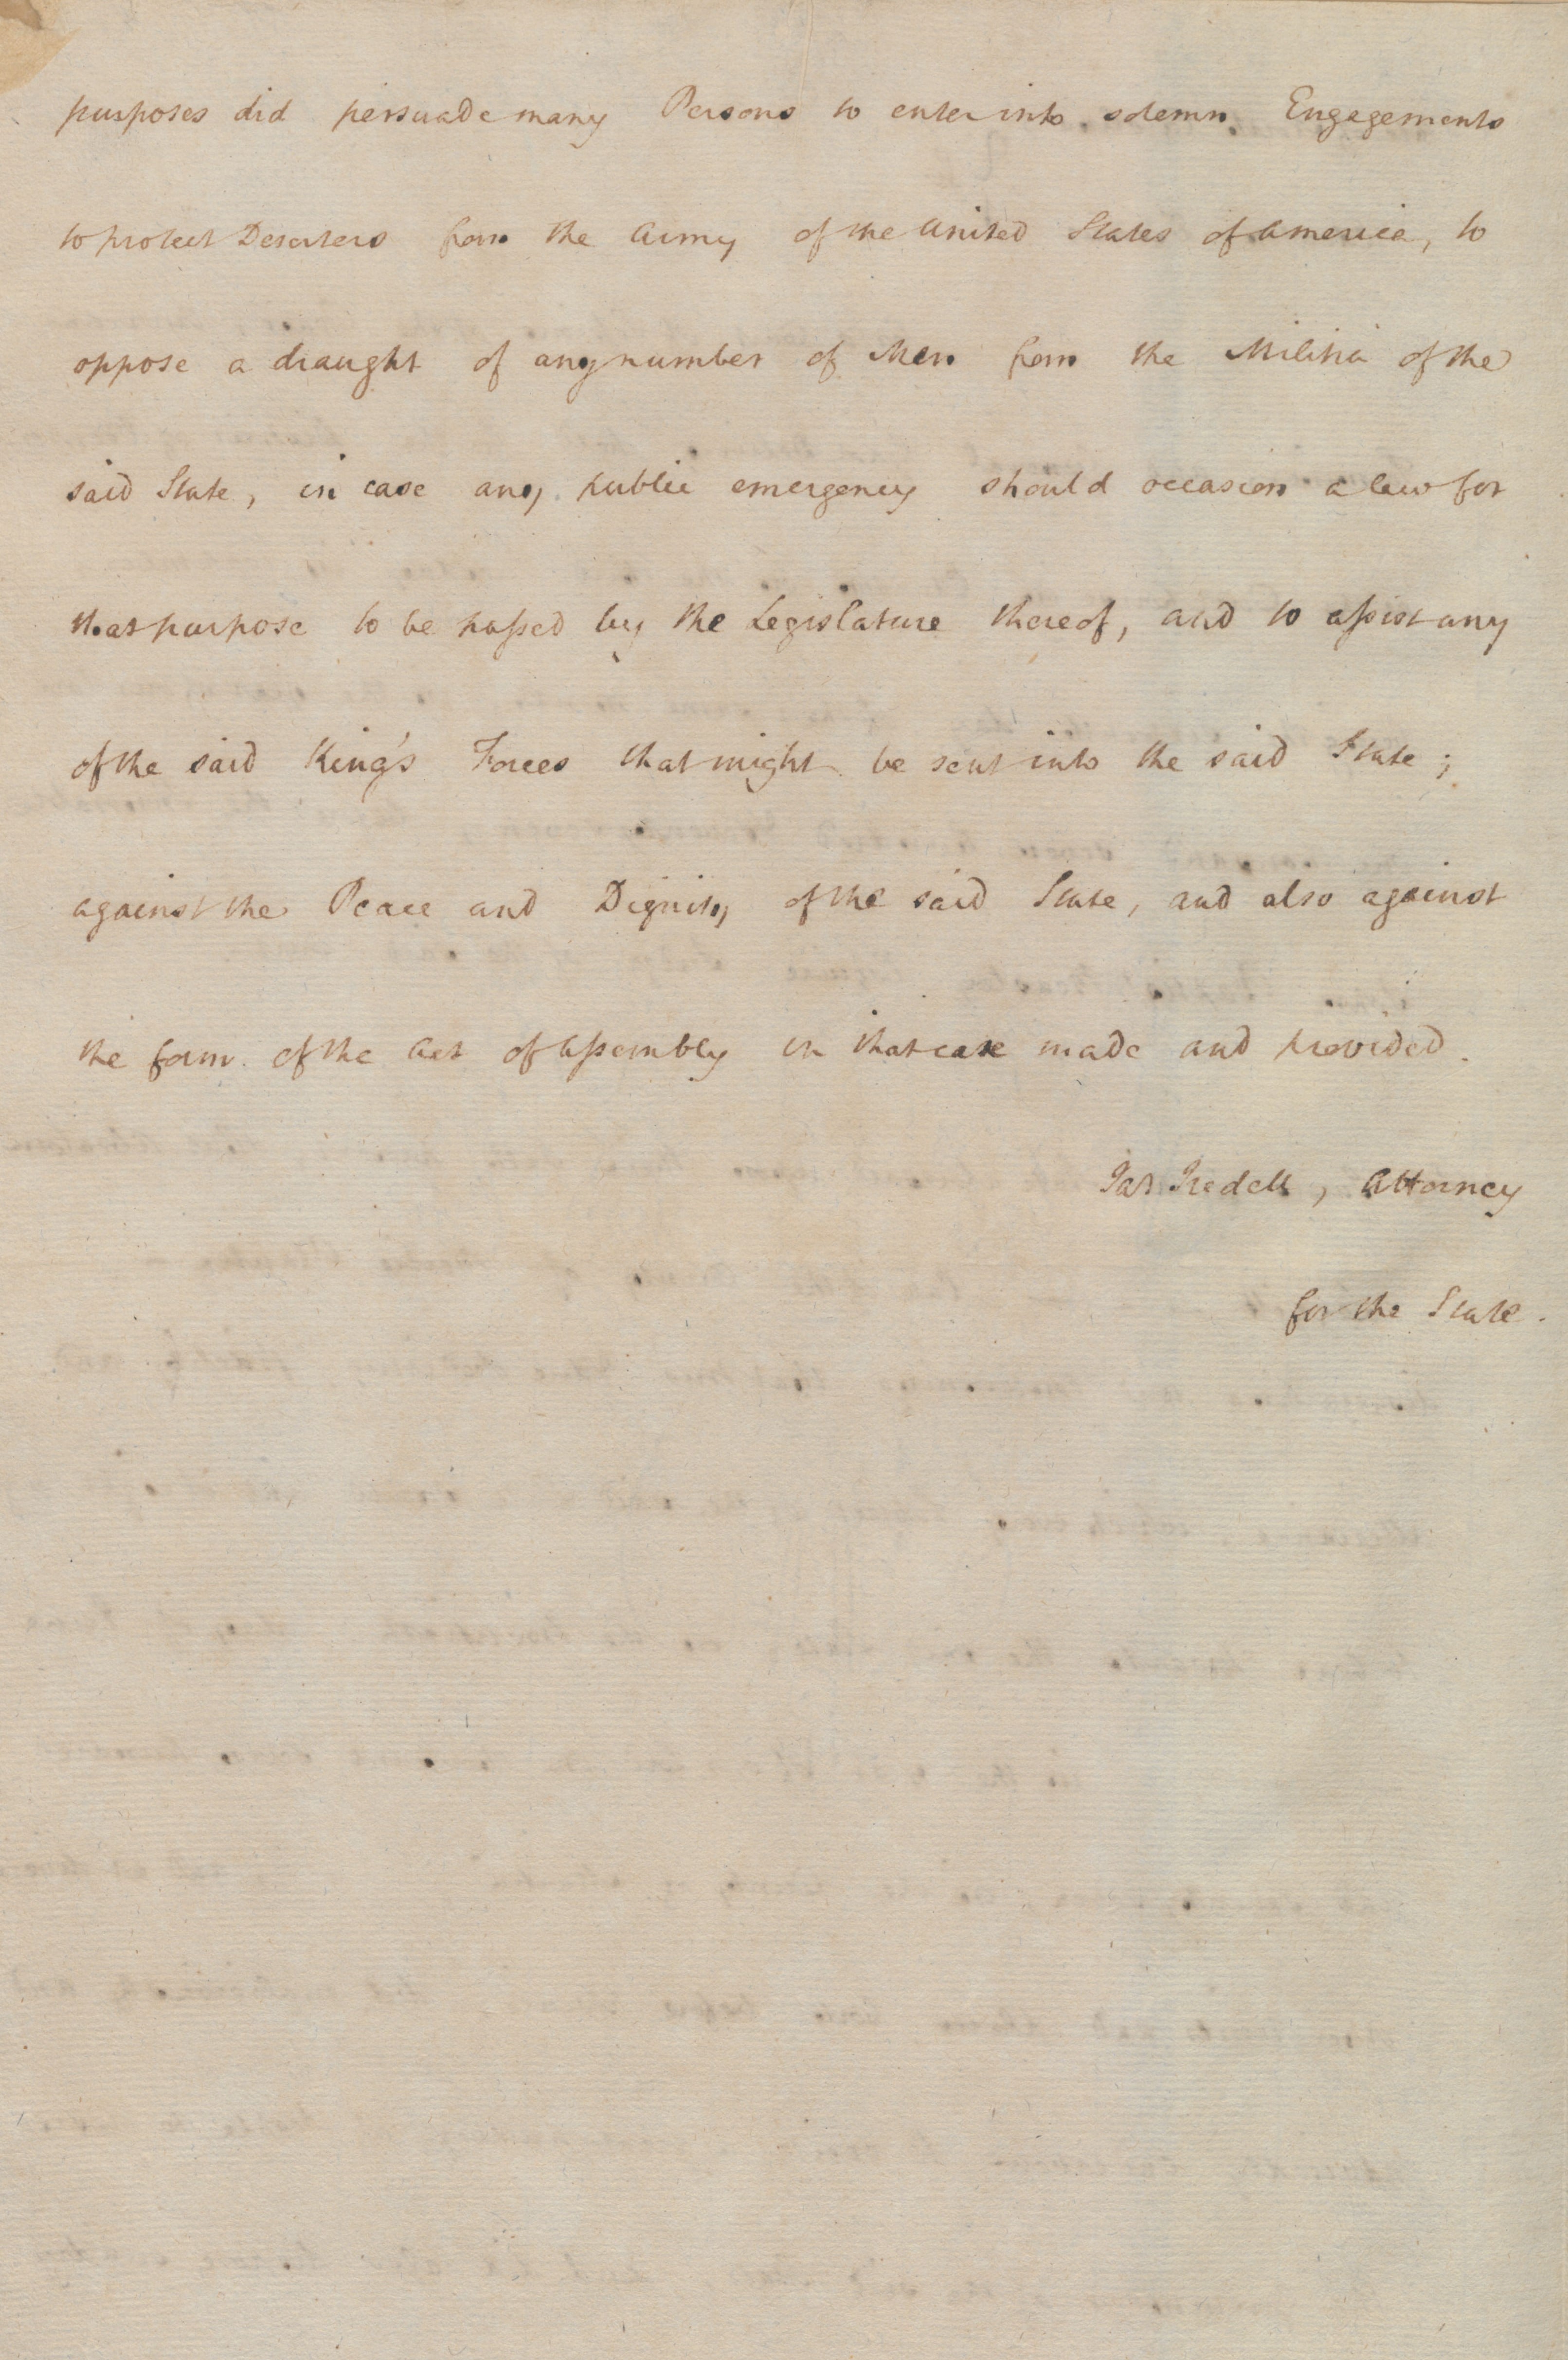 purposes did persuade many Persons to enter into solemn Engagements
to protect Deserters from the Army of the United States of America, to
oppose a draught of any number of Men from the Militia of the
said State, in case any public emergency should occasion a law for
that purpose to be passed by the Legislature thereof, and to assist any
of the said King's Forces that might be sent into the said State;
against the Peace and Dignity of the said State, and also against
the form of the Act of Assembly in that case made and provided.
Jas Iredell, Attorney
for the State.